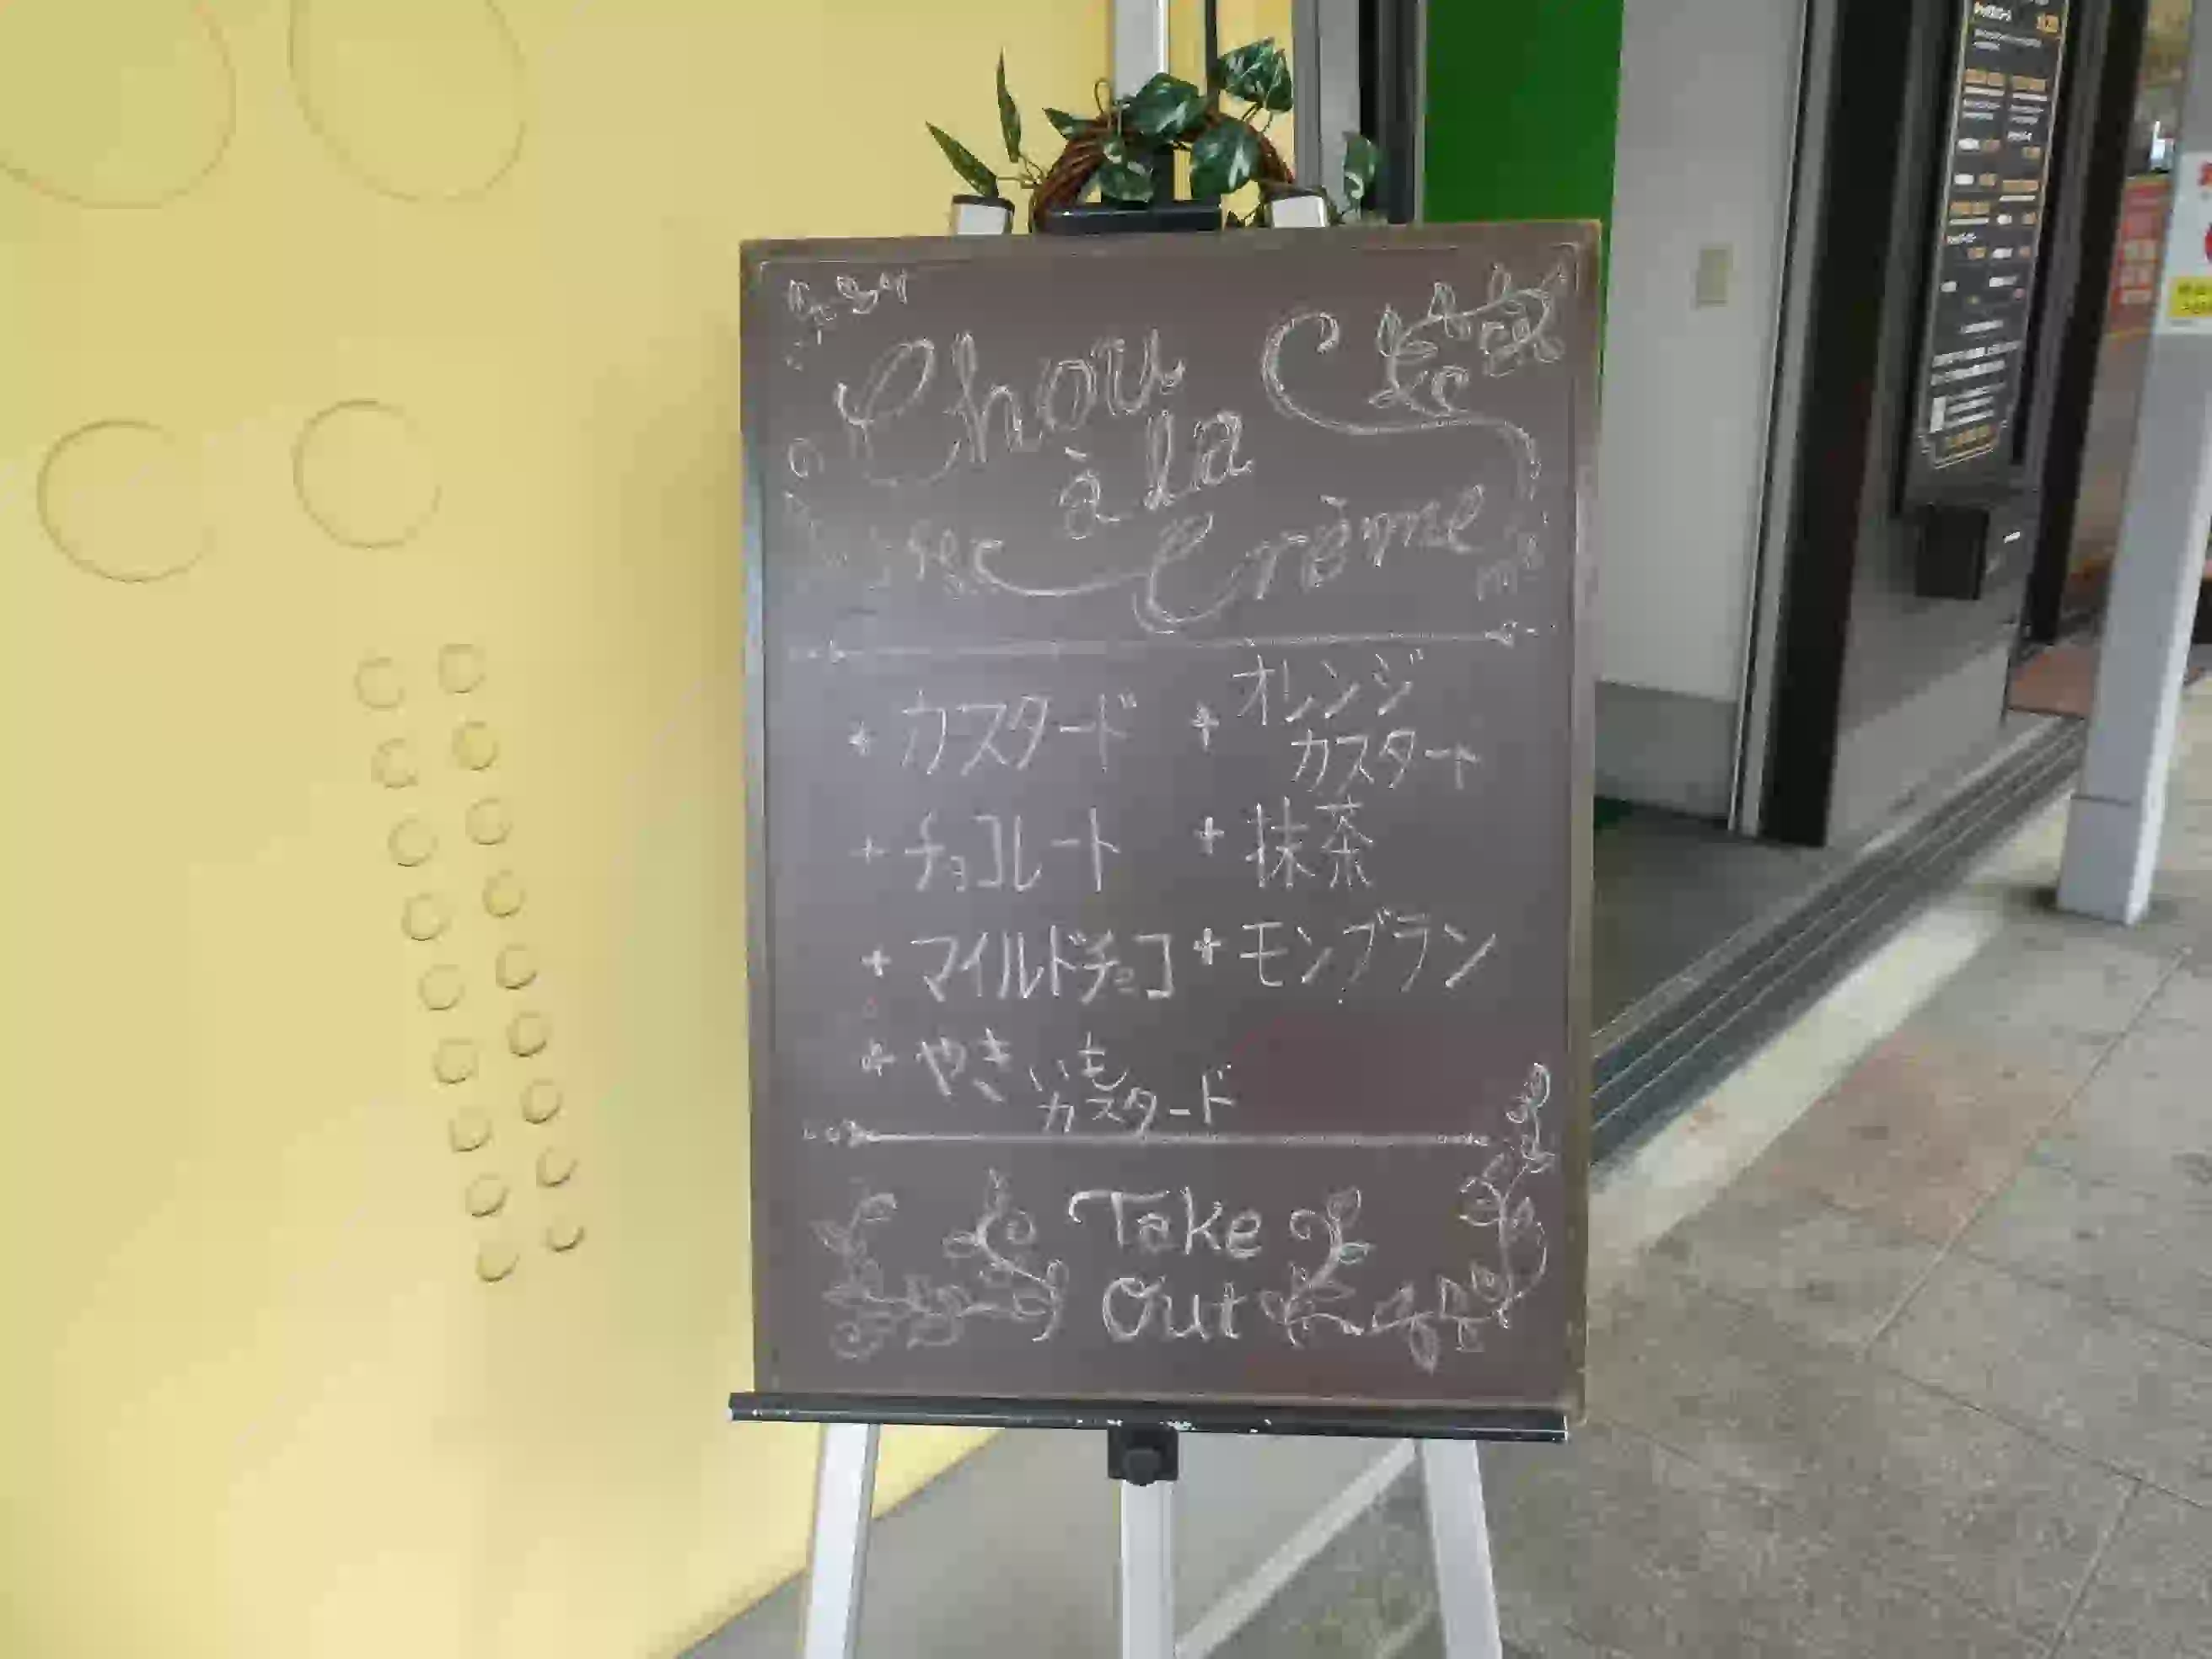 Chou
à la
Crème
カスタード
オレンジ
カスタード
チョコレート
抹茶
マイルドチョコ
モンブラン
やきいも
カスタード
Take
Out